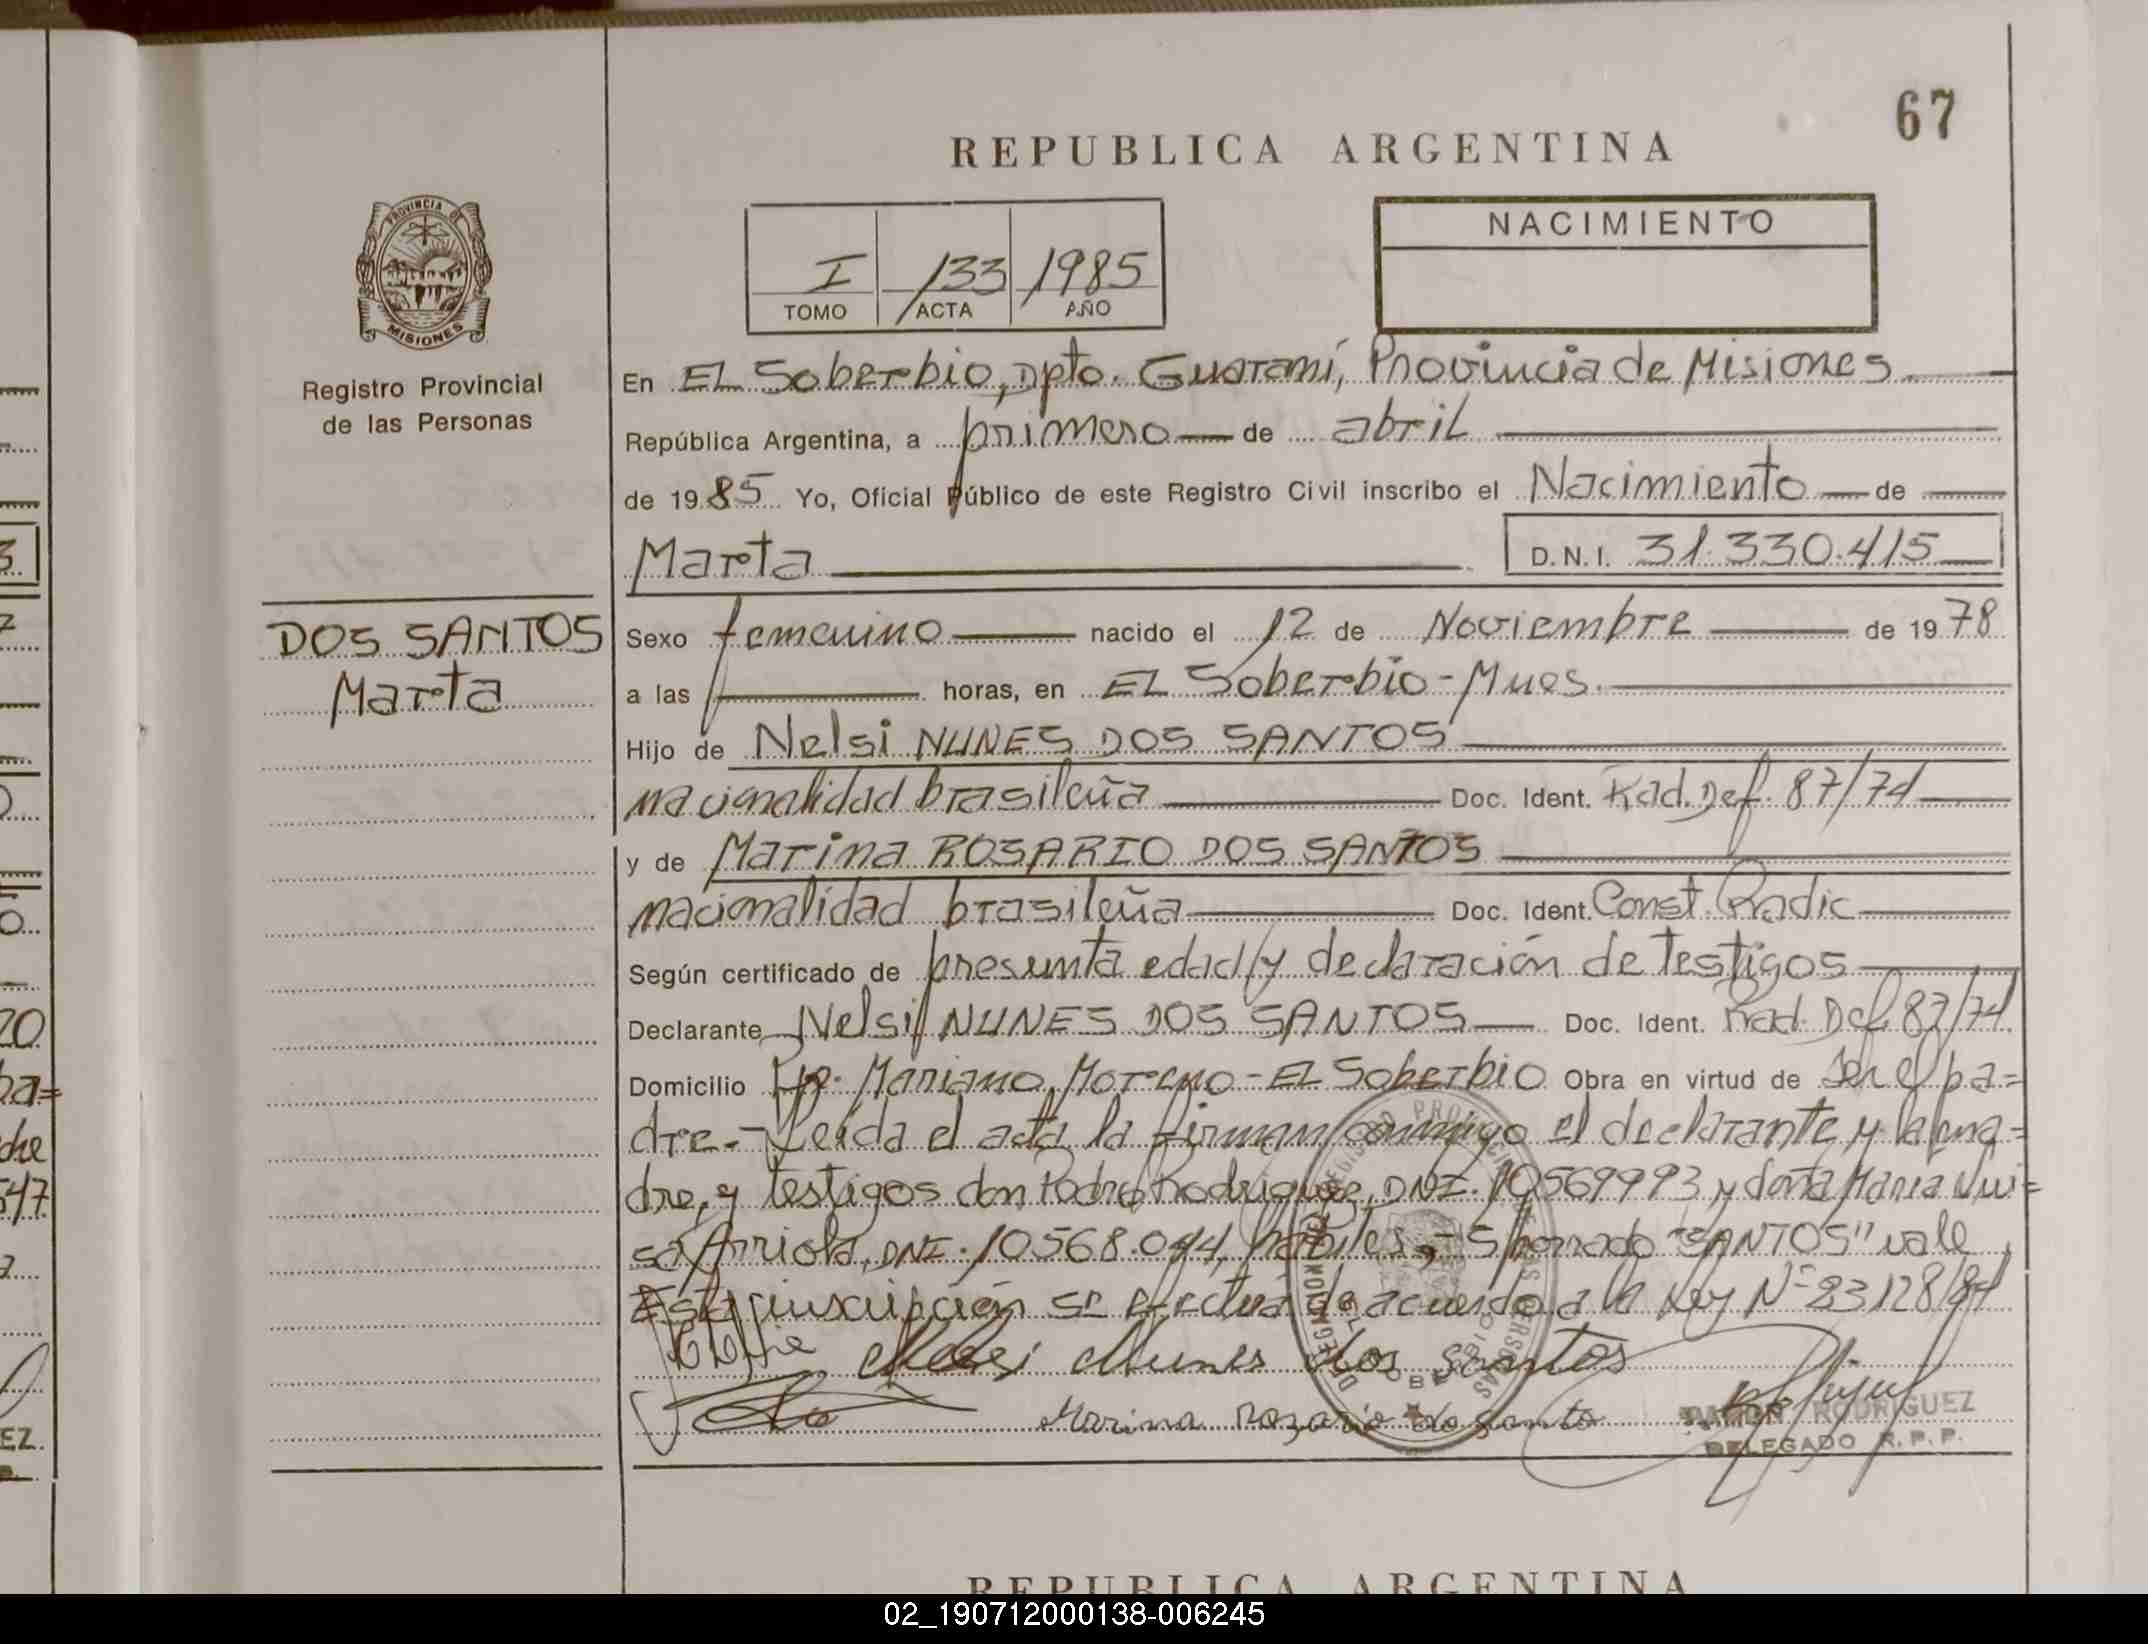 67
REPUBLICA ARGENTINA
PROVINCIA DE
MISIONES
Registro Provincial
de las Personas
NACIMIENTO
I 133 1985
TOMO ACTA AÑO
En EL Soberbio, Dpto. Guaraní, Provincia de Misiones.
República Argentina, a primero de abril
de 19 85 Yo, Oficial Público de este Registro Civil inscribo el Nacimiento de
Marta D.N.I. 31.330.415
DOS SANTOS
Marta
Sexo femenino nacido el 12 de Noviembre de 19 78
a las horas, en EL Soberbio - Mnes.
Hijo de Nelsi NUNES DOS SANTOS
nacionalidad brasileña Doc. Ident. Rad. Def. 87/74
y de Marina ROSARIO DOS SANTOS
nacionalidad brasileña Doc. Ident. Const. Radic
Según certificado de presunta edad y declaración de testigos
Declarante Nelsi NUNES DOS SANTOS Doc. Ident. Rad. Def. 87/74
Domicilio Mariano Moreno - EL Soberbio Obra en virtud de ser el pa=
dre.- Leída el acta la firman conmigo el declarante y la ma=
dre, y testigos don Pedro Rodriguez, DNI. 10569993 y doña María Lui=
sa Arriola, DNI. 10568.044, hábiles,- S/borrado "SANTOS" vale
Esta inscripción se efectúa de acuerdo a la Ley Nº 23128/84
Nelsi Nunes dos Santos
Marina Rozario do Santo
RAMON RODRIGUEZ
DELEGADO R.P.P.
REPUBLICA ARGENTINA
02_190712000138-006245